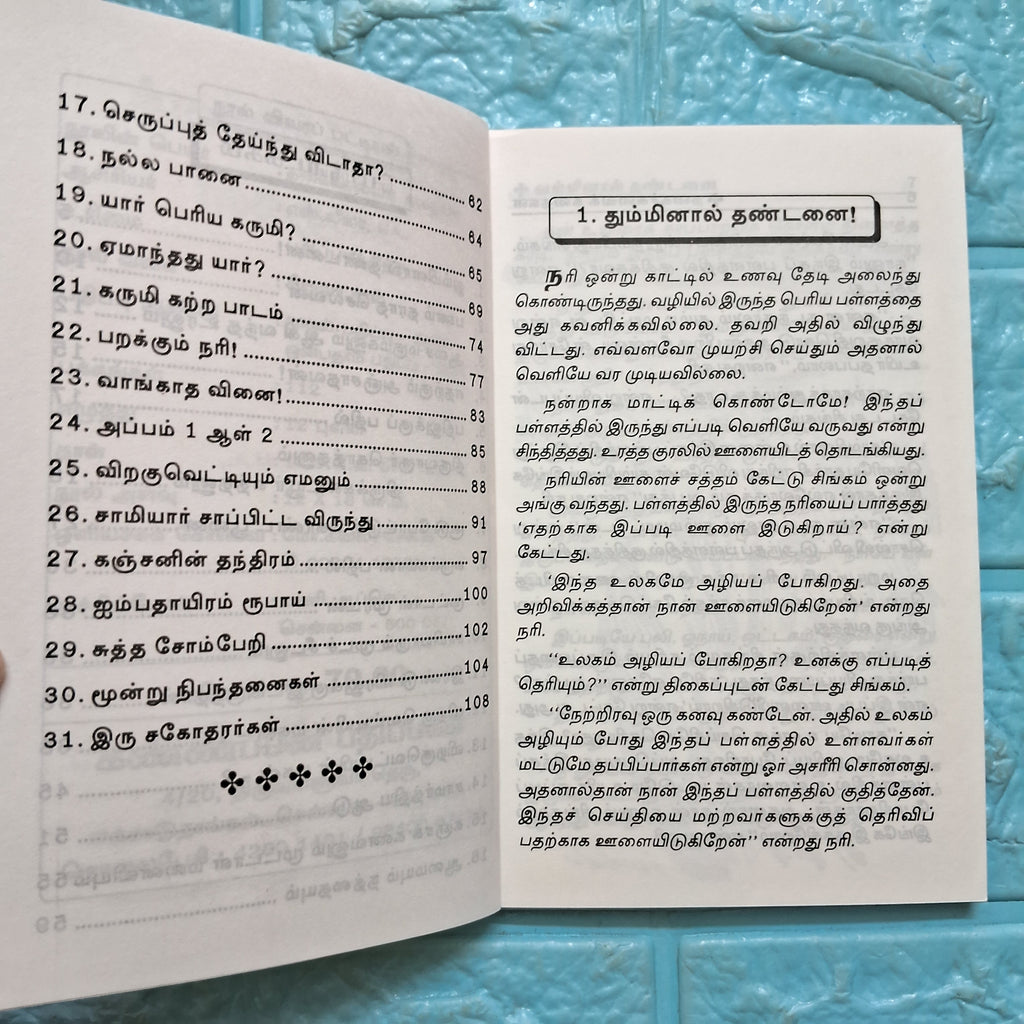 17. செருப்புத் தேய்ந்து விடாதா? .............. 62
18. நல்ல பானை .............. 64
19. யார் பெரிய கருமி? .............. 65
20. ஏமாந்தது யார்? .............. 69
21. கருமி கற்ற பாடம் .............. 74
22. பறக்கும் நரி! .............. 77
23. வாங்காத வினை! .............. 83
24. அப்பம் 1 ஆள் 2 .............. 85
25. விறகுவெட்டியும் எமனும் .............. 88
26. சாமியார் சாப்பிட்ட விருந்து .............. 91
27. கஞ்சனின் தந்திரம் .............. 97
28. ஐம்பதாயிரம் ரூபாய் .............. 100
29. சுத்த சோம்பேறி .............. 102
30. மூன்று நிபந்தனைகள் .............. 104
31. இரு சகோதரர்கள் .............. 108
1. தும்மினால் தண்டனை!
நரி ஒன்று காட்டில் உணவு தேடி அலைந்து
கொண்டிருந்தது. வழியில் இருந்த பெரிய பள்ளத்தை
அது கவனிக்கவில்லை. தவறி அதில் விழுந்து
விட்டது. எவ்வளவோ முயற்சி செய்தும் அதனால்
வெளியே வர முடியவில்லை.
நன்றாக மாட்டிக் கொண்டோமே! இந்தப்
பள்ளத்தில் இருந்து எப்படி வெளியே வருவது என்று
சிந்தித்தது. உரத்த குரலில் ஊளையிடத் தொடங்கியது.
நரியின் ஊளைச் சத்தம் கேட்டு சிங்கம் ஒன்று
அங்கு வந்தது. பள்ளத்தில் இருந்த நரியைப் பார்த்தது
'எதற்காக இப்படி ஊளை இடுகிறாய்? என்று
கேட்டது.
'இந்த உலகமே அழியப் போகிறது. அதை
அறிவிக்கத்தான் நான் ஊளையிடுகிறேன்' என்றது
நரி.
''உலகம் அழியப் போகிறதா? உனக்கு எப்படித்
தெரியும்?'' என்று திகைப்புடன் கேட்டது சிங்கம்.
''நேற்றிரவு ஒரு கனவு கண்டேன். அதில் உலகம்
அழியும் போது இந்தப் பள்ளத்தில் உள்ளவர்கள்
மட்டுமே தப்பிப்பார்கள் என்று ஓர் அசரீரி சொன்னது.
அதனால்தான் நான் இந்தப் பள்ளத்தில் குதித்தேன்.
இந்தச் செய்தியை மற்றவர்களுக்குத் தெரிவிப்
பதற்காக ஊளையிடுகிறேன்'' என்றது நரி.